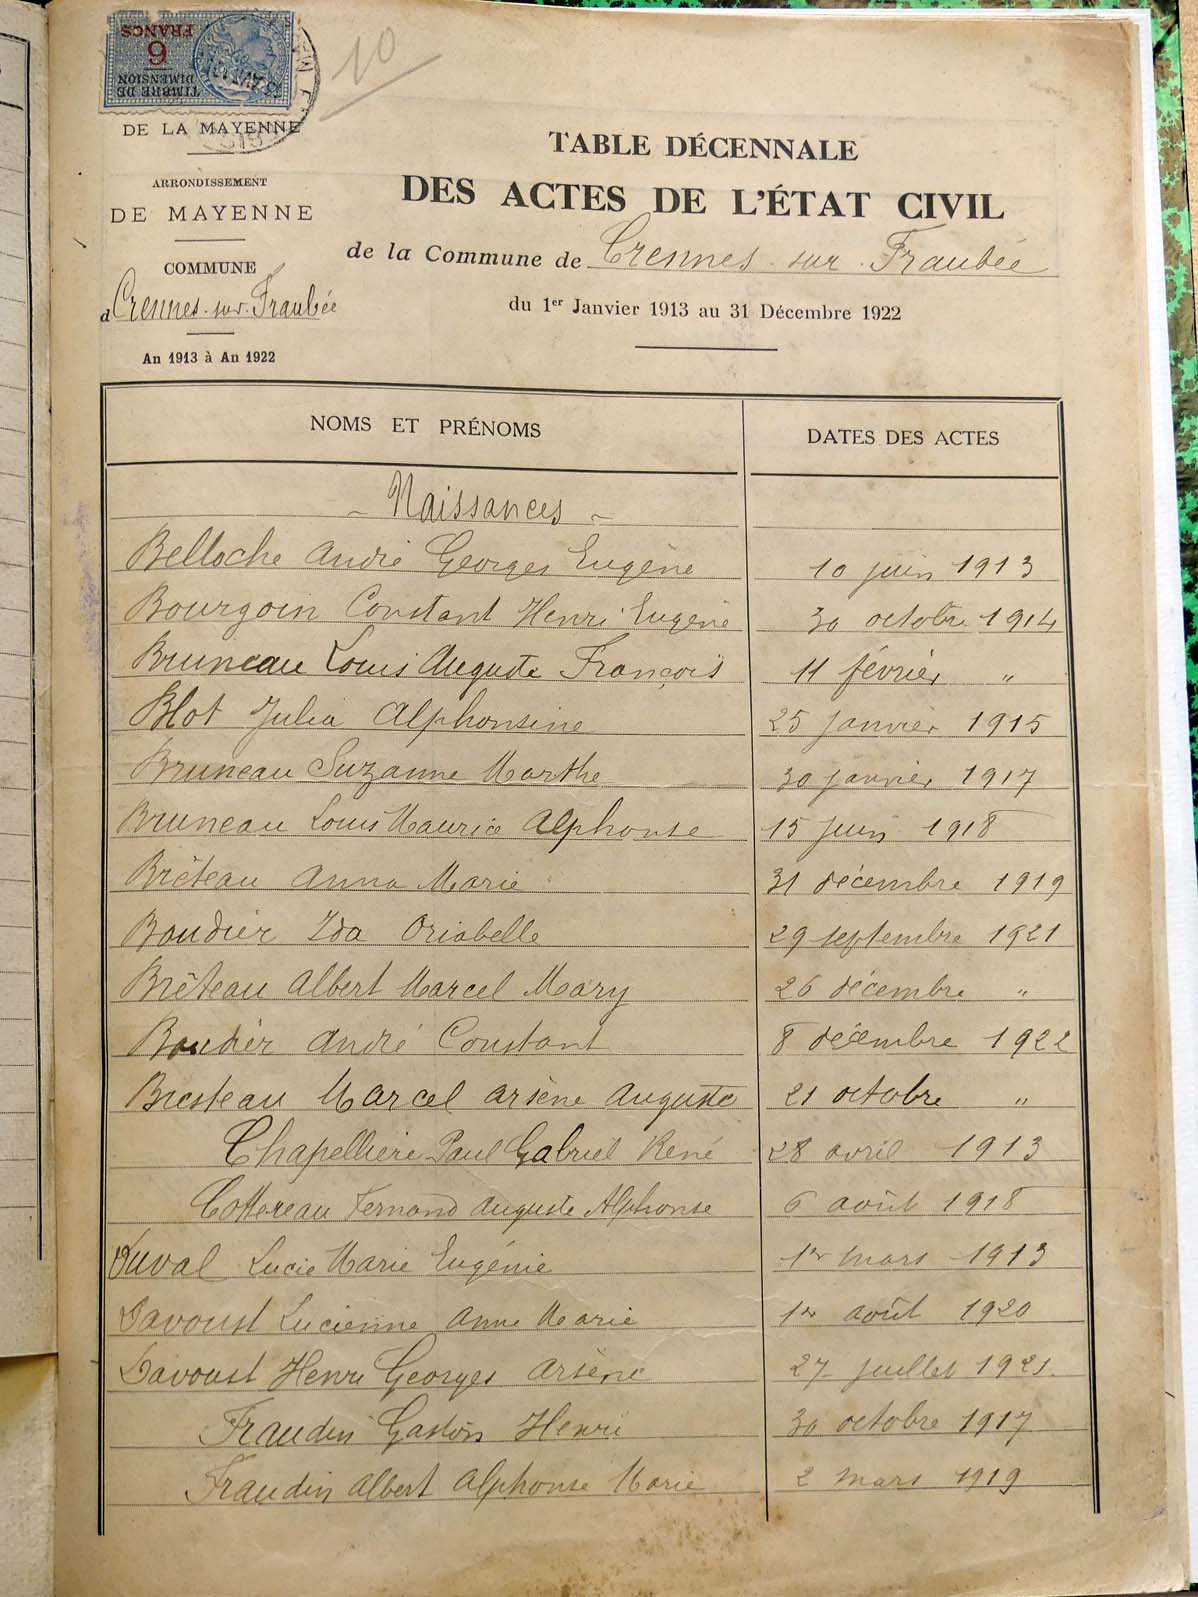 TIMBRE DE DIMENSION
6 FRANCS
10
DE LA MAYENNE
ARRONDISSEMENT
DE MAYENNE
COMMUNE
d Crennes-sur-Fraubée
An 1913 à An 1922
TABLE DÉCENNALE
DES ACTES DE L'ÉTAT CIVIL
de la Commune de Crennes-sur-Fraubée
du 1er Janvier 1913 au 31 Décembre 1922
NOMS ET PRÉNOMS DATES DES ACTES
- Naissances -
Belloche André Georges Eugène 10 juin 1913
Bourgoin Constant Henri Eugène 30 octobre 1914
Bruneau Louis Auguste François 11 février "
Blot Julia Alphonsine 25 janvier 1915
Bruneau Suzanne Marthe 30 janvier 1917
Bruneau Louis Maurice Alphonse 15 juin 1918
Brêteau Anna Marie 31 décembre 1919
Boudier Ida Oriabelle 29 septembre 1921
Brêteau Albert Marcel Mary 26 décembre "
Boudier André Constant 8 décembre 1922
Bresteau Marcel Arsène Auguste 21 octobre "
Chapellière Paul Gabriel René 28 avril 1913
Cottereau Fernand Auguste Alphonse 6 août 1918
Duval Lucie Marie Eugénie 1er mars 1913
Davoust Lucienne Anne Marie 1er août 1920
Davoust Henri Georges Arsène 27 juillet 1921.
Fraudin Gaston Henri 30 octobre 1917
Fraudin Albert Alphonse Marie 2 mars 1919